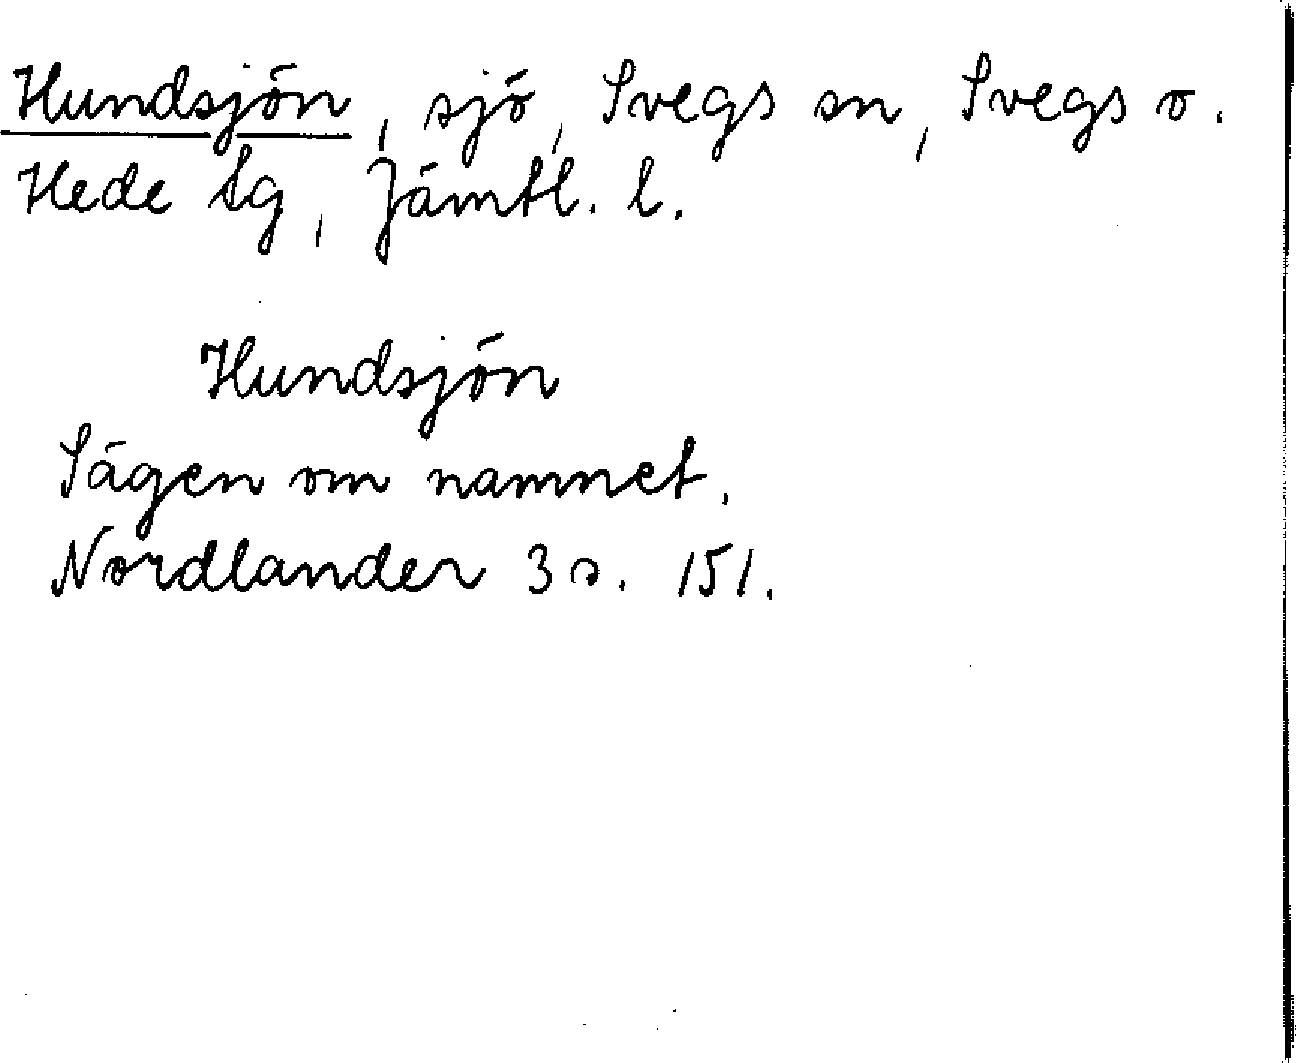 Hundsjön, sjö, Svegs sn, Svegs o.
Hede tg, Jämtl. l.
Hundsjön
Sägen om namnet.
Nordlander 3 s. 151.